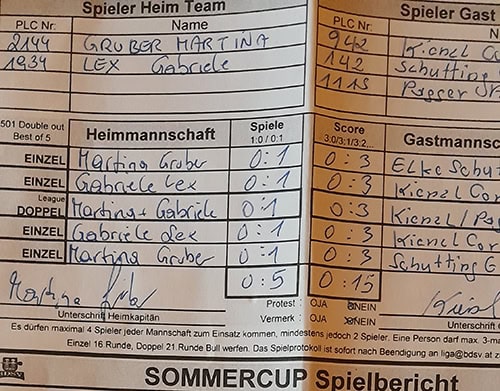 Spieler Heim Team Spieler Gast
PLC Nr. Name PLC Nr.
2144 GRUBER MARTINA 942 Kienzl Co
1934 LEX Gabriele 142 Schutting
1115
501 Double out Best of 5 Heimmannschaft Spiele 1:0 / 0:1 Score 3:0/3:1/3:2,... Gastmannsch
EINZEL Martina Gruber 0:1 0:3 Elke Schut
EINZEL Gabriele Lex 0:1 0:3 Kienzl Cor
League DOPPEL Martina + Gabriele 0:1 0:3 Kienzl /
EINZEL Gabriele Lex 0:1 0:3 Kienzl Cor
EINZEL Martina Gruber 0:1 0:3 Schutting G
0:5 0:15
Unterschrift Heimkapitän Protest : OJA NEIN Unterschri
Vermerk : OJA NEIN
Es dürfen maximal 4 Spieler jeder Mannschaft zum Einsatz kommen, mindestens jedoch 2 Spieler. Eine Person darf max. 3-ma
Einzel 16 Runde, Doppel 21.Runde Bull werfen. Das Spielprotokoll ist sofort nach Beendigung an liga@bdsv.at z
SOMMERCUP Spielbericht